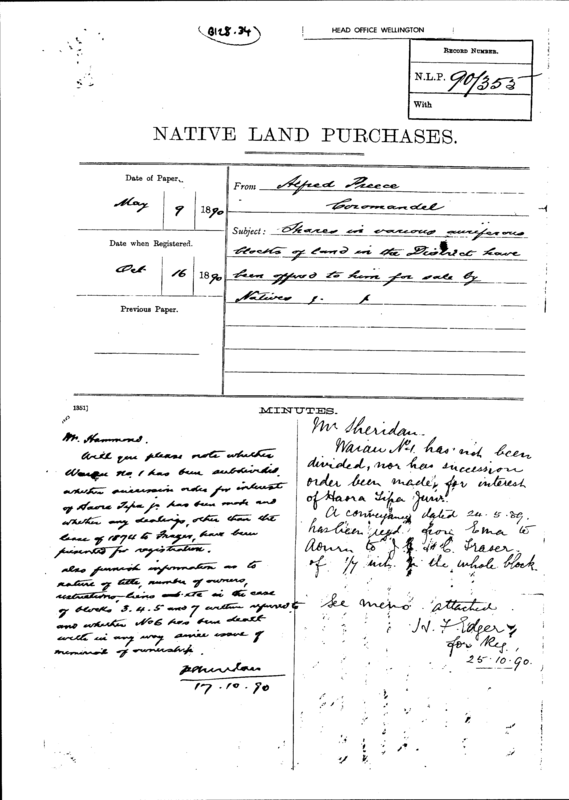 G128.34
HEAD OFFICE WELLINGTON
RECORD NUMBER.
N.L.P. 90/353
With
NATIVE LAND PURCHASES.
Date of Paper.
May 9 1890
Date when Registered.
Oct 16 1890
Previous Paper.
From Alfred Preece
Coromandel
Subject: Shares in various auriferous
blocks of land in the District have
been offered to him for sale by
Natives
1351]
MINUTES.
Mr. Hammond.
Will you please note whether
Waiau No. 1 has been subdivided,
whether succession order for interest
of Haora Tipa Jr. has been made and
whether any dealings, other than the
lease of 1874 to Fraser, have been
presented for registration.
Also furnish information as to
nature of title, number of owners,
restrictions, liens in the case
of blocks 3.4.5 and 7 within referred to
and whether No 6 has been dealt
with in any way since issue of
memorial of ownership.
17.10.90
Mr Sheridan.
Waiau No. 1 has not been
divided, nor has succession
order been made for interest
of Haora Tipa Junr.
A conveyance dated 24.5.89
has been regd. from Emar to
to Fraser
of 1/7 int. in the whole block.
See memo attached
H. F. Edger
for Reg.
25-10-90.